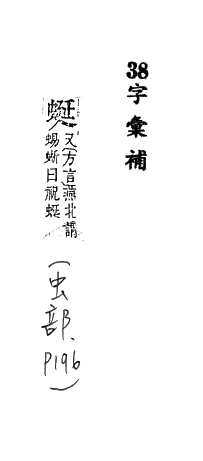 38字彙補
蜓又方言燕北謂
蜴蜥曰祝蜓
(虫部、P196)